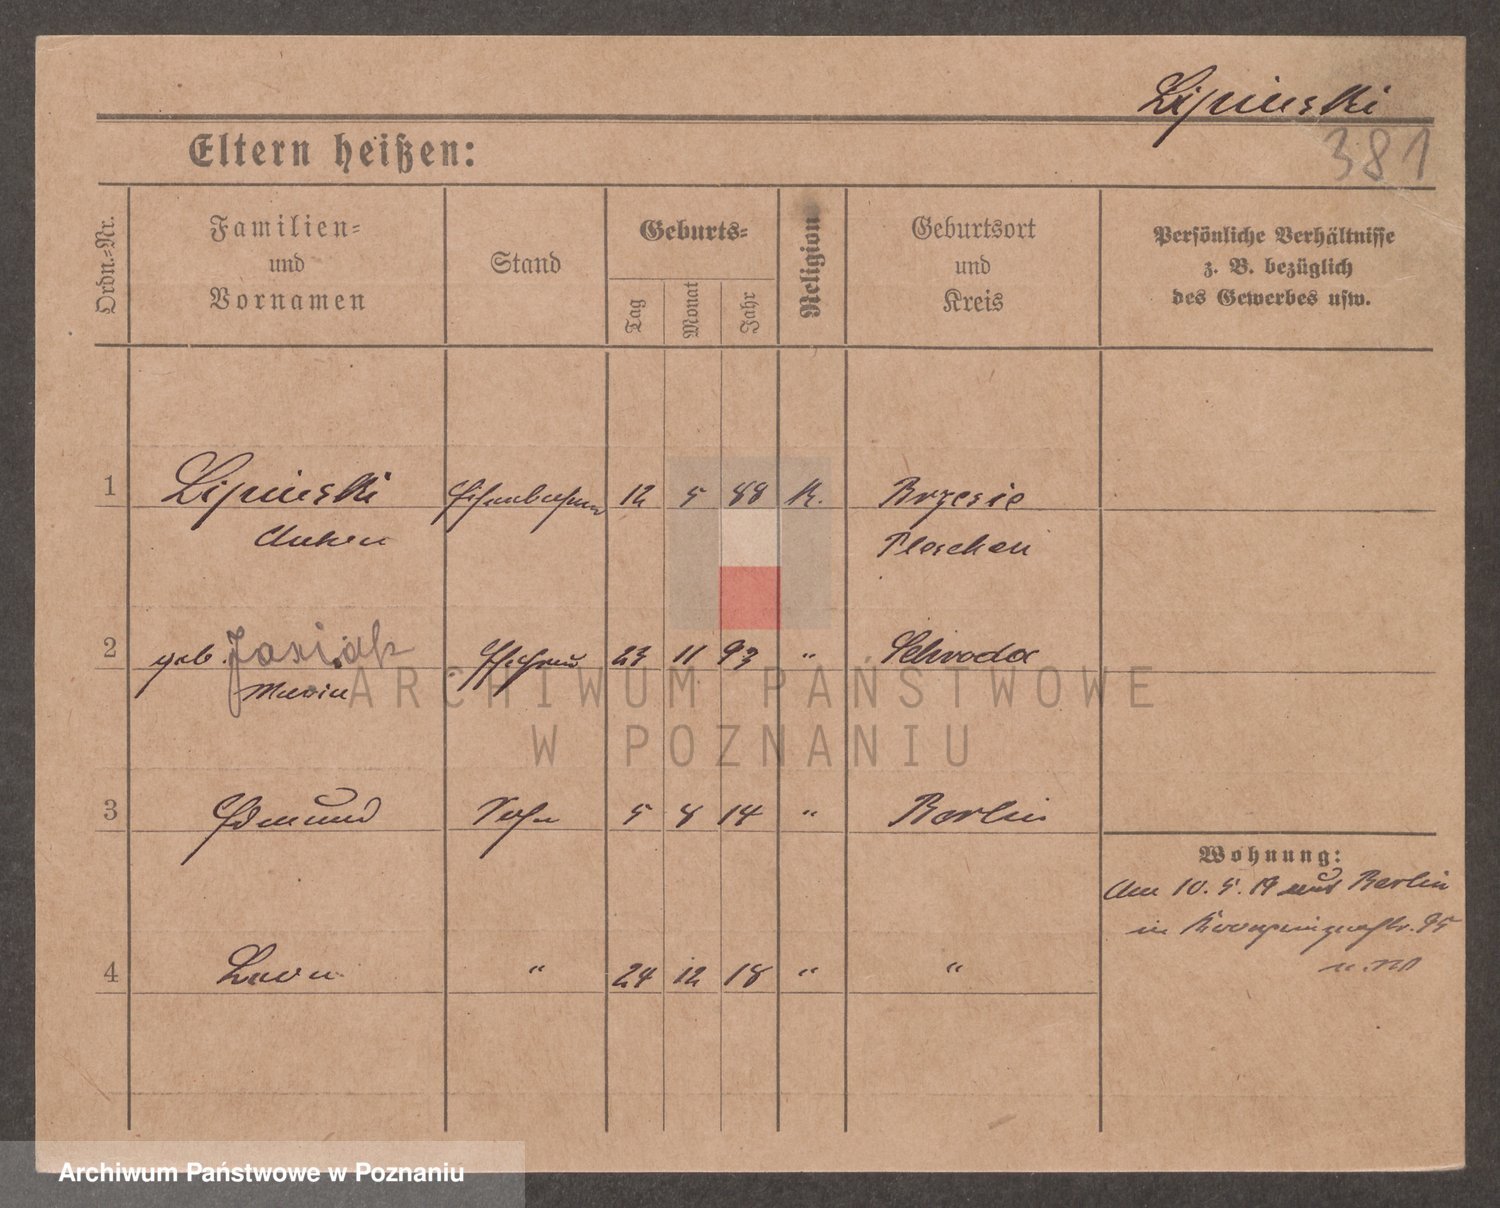 Lipinski
381
Eltern heißen:
Ordn.-Nr.
Familien-
und
Vornamen
Stand
Geburts-
Tag
Monat
Jahr
Religion
Geburtsort
und
Kreis
Persönliche Verhältnisse
z. B. bezüglich
des Gewerbes usw.
1 Lipinski 12 5 88 K. Brzesie
Pleschen
2 geb. Jasiak Ehefrau 23 11 93 " Schroda
Maria
3 Edmund Sohn 5 8 14 " Berlin
Wohnung:
Am 10. 5. 19 aus Berlin
in
4 Leon " 24 12 18 " "
ARCHIWUM PAŃSTWOWE
W POZNANIU
Archiwum Państwowe w Poznaniu